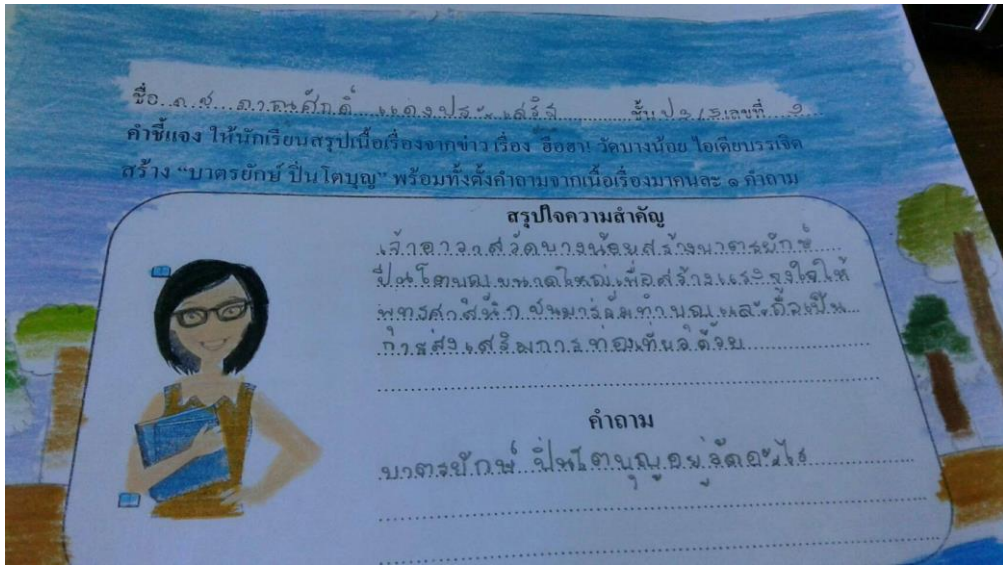 ชื่อ ด.ช. ภาณุศักดิ์ แดงประเสริฐ ชั้น ป เลขที่
คำชี้แจง ให้นักเรียนสรุปเนื้อเรื่องจากข่าว เรื่อง ฮือฮา! วัดบางน้อย ไอเดียบรรเจิด
สร้าง “บาตรยักษ์ ปิ่นโตบุญ” พร้อมทั้งตั้งคำถามจากเนื้อเรื่องมาคนละ ๑ คำถาม
สรุปใจความสำคัญ
เจ้าอาวาสวัดบางน้อยสร้างบาตรยักษ์
ปิ่นโตบุญขนาดใหญ่เพื่อสร้างแรงจูงใจให้
พุทธศาสนิกชนมาร่วมทำบุญและถือเป็น
การส่งเสริมการท่องเที่ยวด้วย
คำถาม
บาตรยักษ์ ปิ่นโตบุญอยู่วัดอะไร